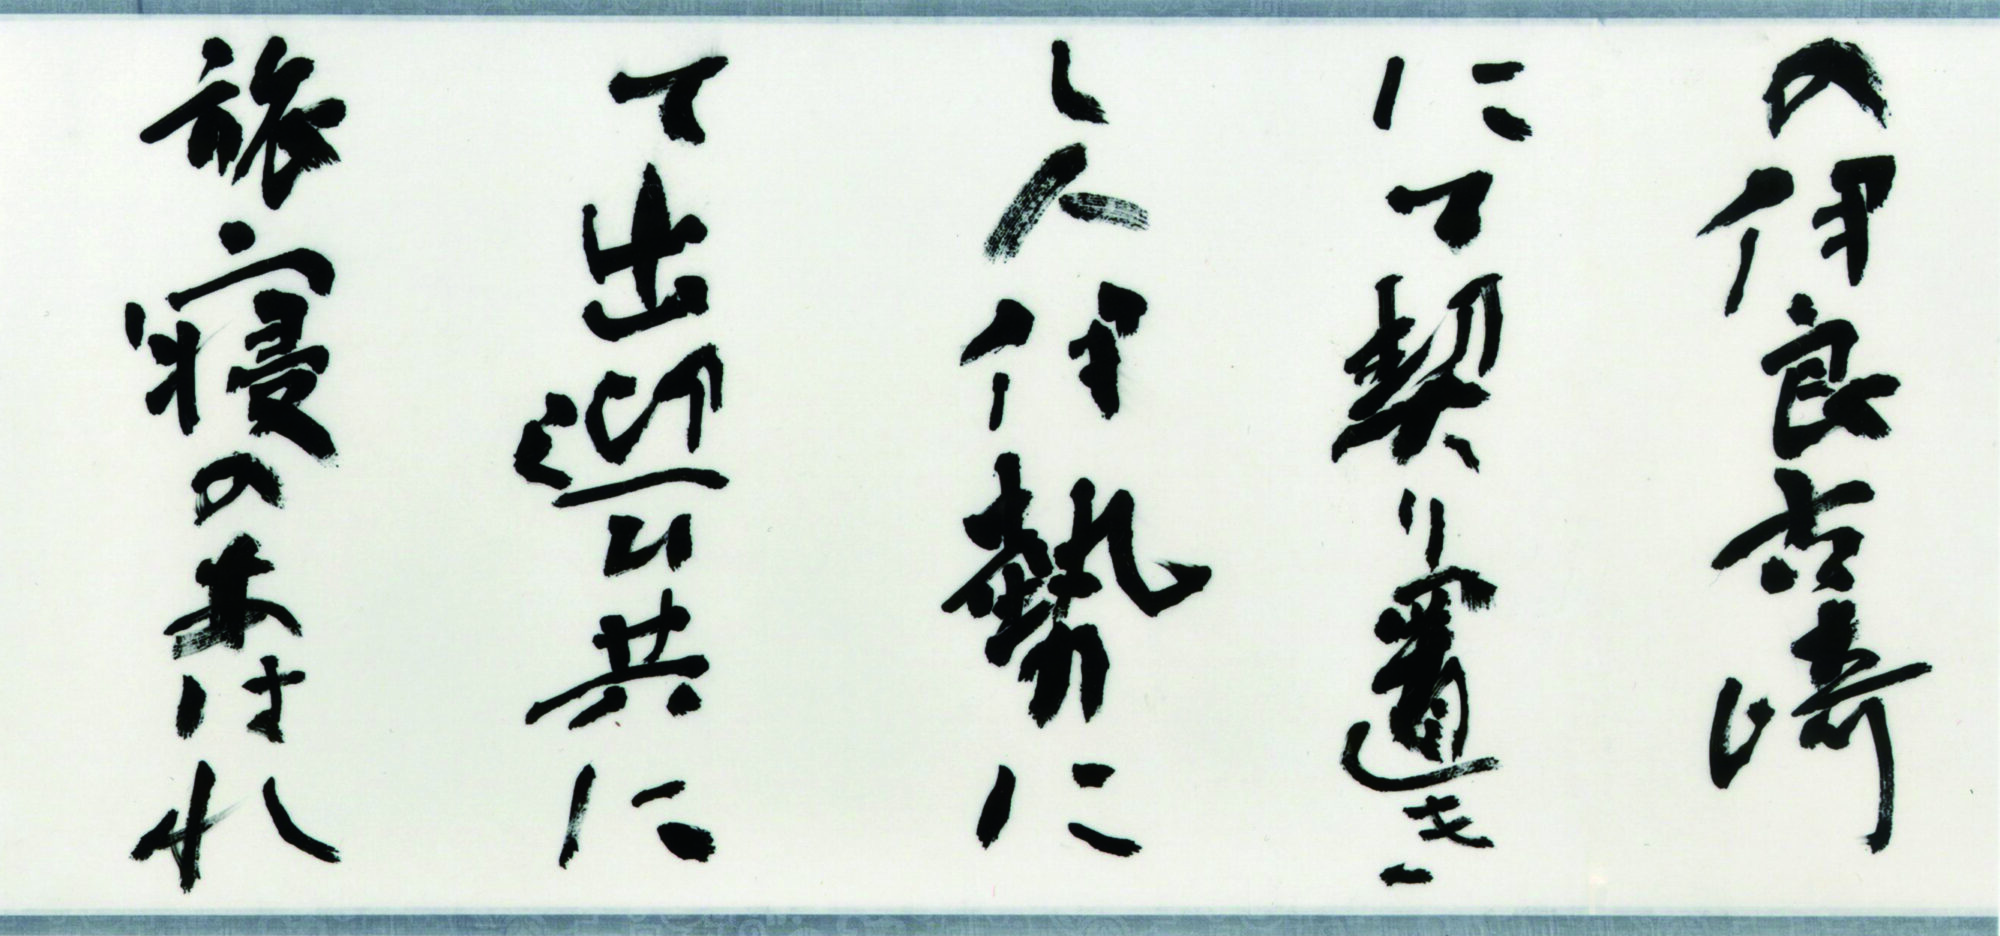 の伊良古崎
にて契り置き
し人伊勢に
て出迎ひ共に
旅寝のあはれ